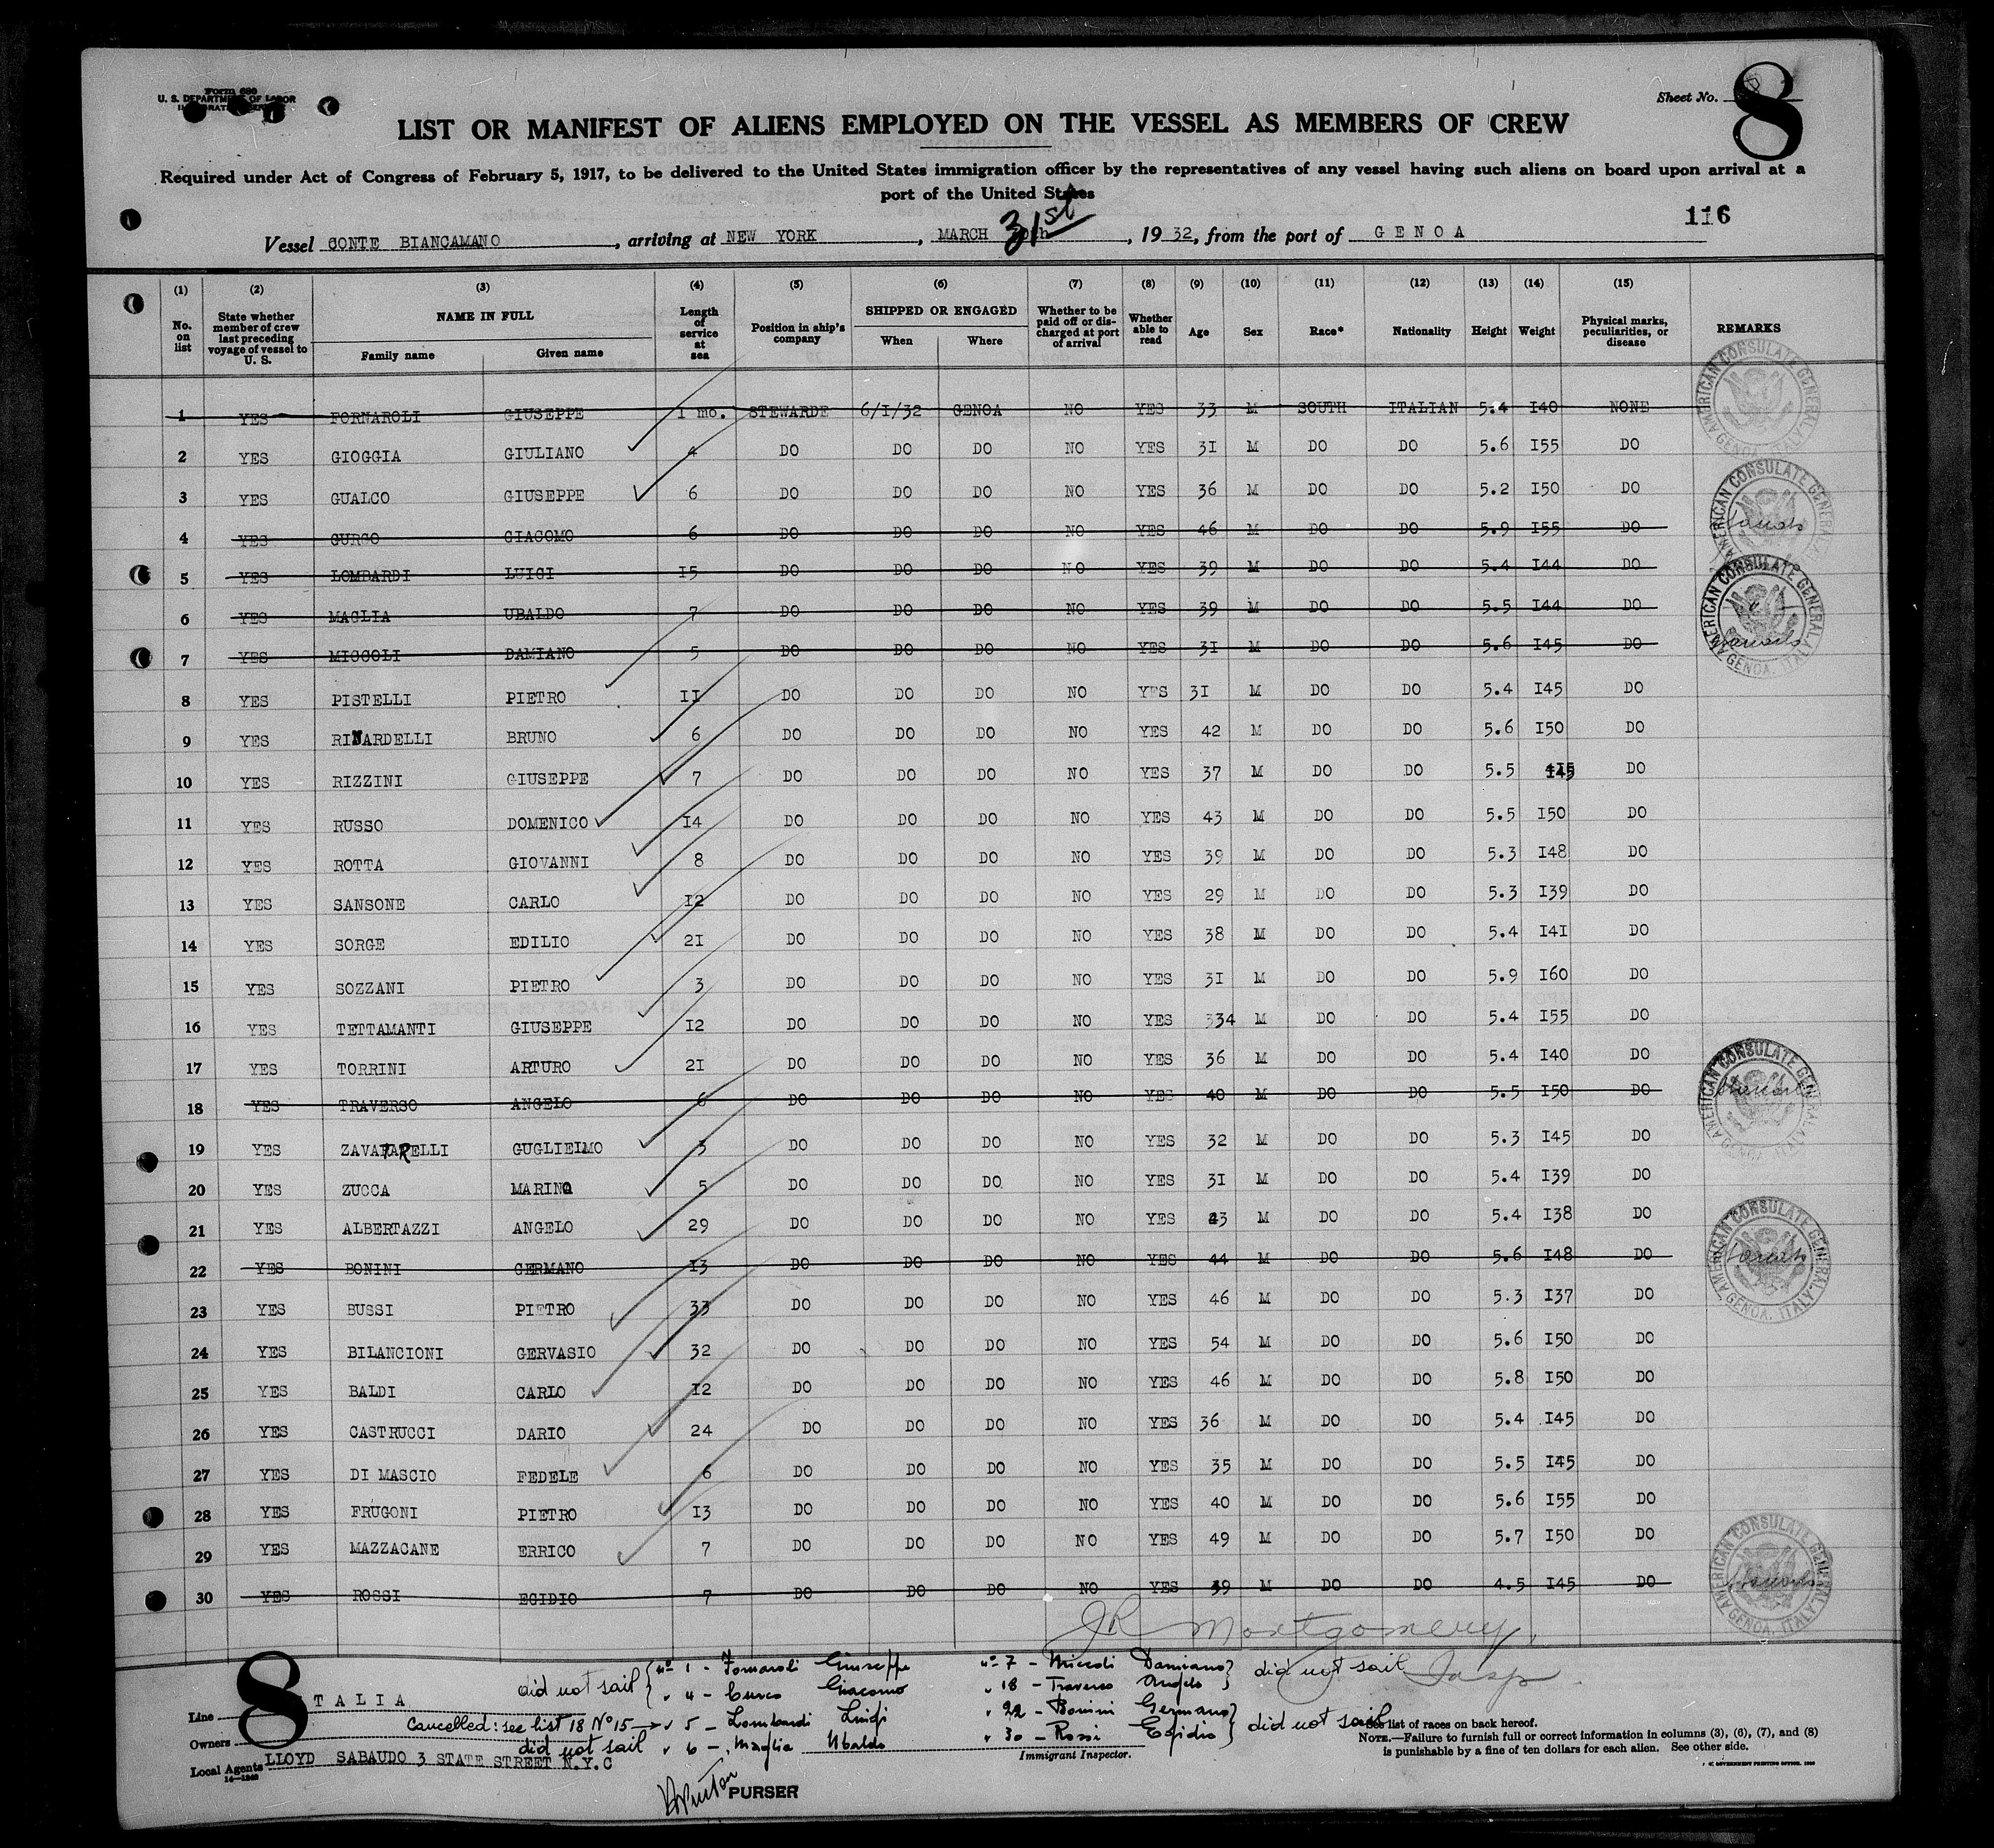 Form 680
U. S. DEPARTMENT OF LABOR
Sheet No. 8
LIST OR MANIFEST OF ALIENS EMPLOYED ON THE VESSEL AS MEMBERS OF CREW
Required under Act of Congress of February 5, 1917, to be delivered to the United States immigration officer by the representatives of any vessel having such aliens on board upon arrival at a
port of the United States
116
Vessel CONTE BIANCAMANO, arriving at NEW YORK, MARCH 31st, 1932, from the port of GENOA
(1) (2) (3) (4) (5) (6) (7) (8) (9) (10) (11) (12) (13) (14) (15)
No. on list | State whether member of crew last preceding voyage of vessel to U. S. | NAME IN FULL Family name Given name | Length of service at sea | Position in ship's company | SHIPPED OR ENGAGED When Where | Whether to be paid off or discharged at port of arrival | Whether able to read | Age | Sex | Race* | Nationality | Height | Weight | Physical marks, peculiarities, or disease | REMARKS
1 YES FORNAROLI GIUSEPPE 1 mo. STEWARDE 6/I/32 GENOA NO YES 33 M SOUTH ITALIAN 5.4 I40 NONE
2 YES GIOGGIA GIULIANO 4 DO DO DO NO YES 3I M DO DO 5.6 I55 DO
3 YES GUALCO GIUSEPPE 6 DO DO DO NO YES 36 M DO DO 5.2 I50 DO
4 YES CURCO GIACOMO 6 DO DO DO NO YES 46 M DO DO 5.9 I55 DO
5 YES LOMBARDI LUIGI I5 DO DO DO NO YES 39 M DO DO 5.4 I44 DO
6 YES MAGLIA UBALDO 7 DO DO DO NO YES 39 M DO DO 5.5 I44 DO
7 YES MICCOLI DAMIANO 5 DO DO DO NO YES 3I M DO DO 5.6 I45 DO
8 YES PISTELLI PIETRO II DO DO DO NO YES 3I M DO DO 5.4 I45 DO
9 YES RINARDELLI BRUNO 6 DO DO DO NO YES 42 M DO DO 5.6 I50 DO
10 YES RIZZINI GIUSEPPE 7 DO DO DO NO YES 37 M DO DO 5.5 145 DO
11 YES RUSSO DOMENICO I4 DO DO DO NO YES 43 M DO DO 5.5 I50 DO
12 YES ROTTA GIOVANNI 8 DO DO DO NO YES 39 M DO DO 5.3 I48 DO
13 YES SANSONE CARLO I2 DO DO DO NO YES 29 M DO DO 5.3 I39 DO
14 YES SORGE EDILIO 2I DO DO DO NO YES 38 M DO DO 5.4 I4I DO
15 YES SOZZANI PIETRO 3 DO DO DO NO YES 3I M DO DO 5.9 I60 DO
16 YES TETTAMANTI GIUSEPPE I2 DO DO DO NO YES 334 M DO DO 5.4 I55 DO
17 YES TORRINI ARTURO 2I DO DO DO NO YES 36 M DO DO 5.4 I40 DO
18 YES TRAVERSO ANGELO 6 DO DO DO NO YES 40 M DO DO 5.5 I50 DO
19 YES ZAVATARELLI GUGLIELMO 3 DO DO DO NO YES 32 M DO DO 5.3 I45 DO
20 YES ZUCCA MARINO 5 DO DO DO NO YES 3I M DO DO 5.4 I39 DO
21 YES ALBERTAZZI ANGELO 29 DO DO DO NO YES 43 M DO DO 5.4 I38 DO
22 YES BONINI GERMANO I3 DO DO DO NO YES 44 M DO DO 5.6 I48 DO
23 YES BUSSI PIETRO 33 DO DO DO NO YES 46 M DO DO 5.3 I37 DO
24 YES BILANCIONI GERVASIO 32 DO DO DO NO YES 54 M DO DO 5.6 I50 DO
25 YES BALDI CARLO I2 DO DO DO NO YES 46 M DO DO 5.8 I50 DO
26 YES CASTRUCCI DARIO 24 DO DO DO NO YES 36 M DO DO 5.4 I45 DO
27 YES DI MASCIO FEDELE 6 DO DO DO NO YES 35 M DO DO 5.5 I45 DO
28 YES FRUGONI PIETRO I3 DO DO DO NO YES 40 M DO DO 5.6 I55 DO
29 YES MAZZACANE ERRICO 7 DO DO DO NO YES 49 M DO DO 5.7 I50 DO
30 YES ROSSI EGIDIO 7 DO DO DO NO YES 39 M DO DO 4.5 I45 DO
AMERICAN CONSULATE GENERAL GENOA, ITALY
AMERICAN CONSULATE GENERAL
AMERICAN CONSULATE GENERAL GENOA, ITALY
AMERICAN CONSULATE GENERAL GENOA, ITALY
AMERICAN CONSULATE GENERAL GENOA, ITALY
AMERICAN CONSULATE GENERAL GENOA, ITALY
JR Montgomery
Insp
did not sail { nº 1 - Fornaroli Giuseppe
" 4 - Curco Giacomo
Cancelled: see list 18 Nº 15 → " 5 - Lombardi Luigi
did not sail " 6 - Maglia Ubaldo
nº 7 - Miccoli Damiano } did not sail
" 18 - Traverso Angelo
" 22 - Bonini Germano } did not sail
" 30 - Rossi Egidio
8
Line ITALIA
Owners
Local Agents LLOYD SABAUDO 3 STATE STREET N.Y.C
14—1240
Immigrant Inspector.
PURSER
* See list of races on back hereof.
NOTE.—Failure to furnish full or correct information in columns (3), (6), (7), and (8)
is punishable by a fine of ten dollars for each alien. See other side.
U. S. GOVERNMENT PRINTING OFFICE